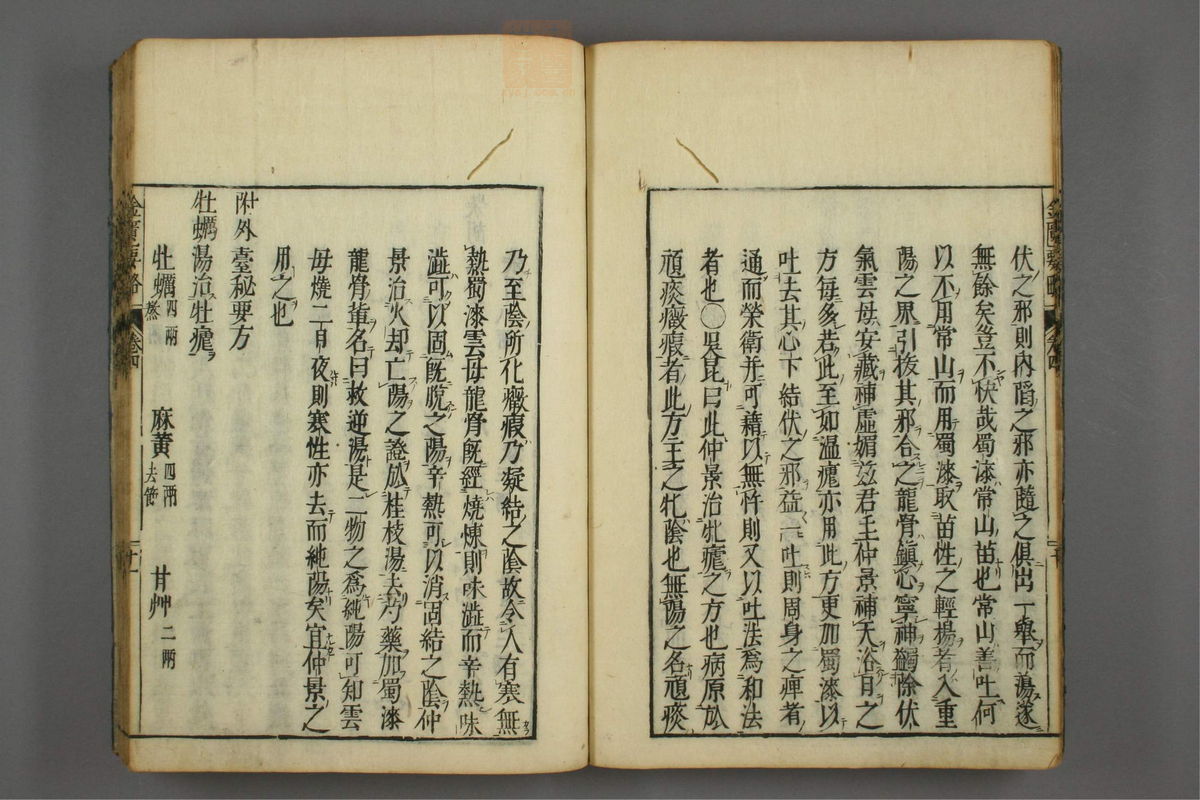 伏之邪則內蹈之邪亦隨之俱出一舉而蕩遂
無餘矣豈不快哉蜀漆常山苗也常山善吐何
以不用常山而用蜀漆取苗性之輕揚者入重
陽之界引拔其邪合之龍骨鎮心寧神蠲除伏
氣雲母安藏補虛媚茲君主仲景補天浴日之
方每多若此至如温瘧亦用此方更加蜀漆以
吐去其心下結伏之邪益一吐則周身之痺者
通而榮衛并可藉以無忤則又以吐法爲和法
者也〇吳昆曰此仲景治牝瘧之方也病原於
頑痰癥瘕者此方主之牝陰也無陽之名頑痰
乃至陰所化癥瘕乃凝結之陰故令人有寒無
熱蜀漆雲母龍骨既經燒煉則味澁而辛熱味
澁可以固既脫之陽辛熱可以消固結之陰仲
景治火却亡陽之證於桂枝湯去芍藥加蜀漆
龍骨蛍名曰救逆湯是二物之爲純陽可知雲
母燒二日夜則寒性亦去而純陽矣宜仲景之
用之也
附外臺秘要方
牡蠣湯治牡瘧
牡蠣 四兩 熬 麻黃 四兩 去節 甘艸 二兩
金匱要略 卷四